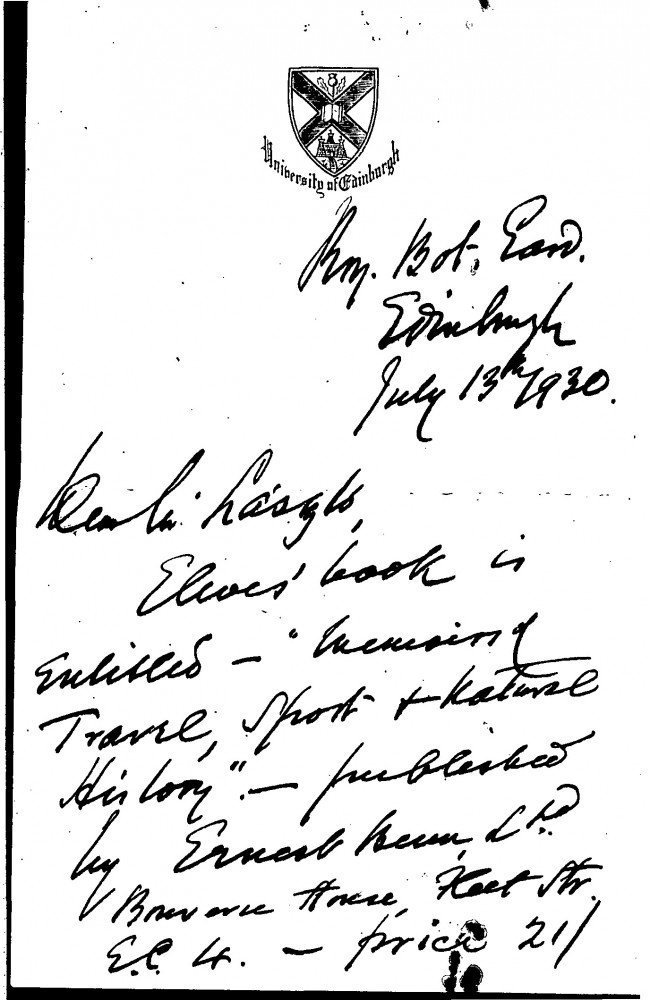 University of Edinburgh
Roy. Bot. Gard.
Edinburgh
July 13th 1930.
Dear László,
Elwes' book is
entitled – "Memoirs of
Travel, Sport & Natural
History" – published
by Ernest Benn, Ltd
Bouverie House, Fleet Str.
E.C. 4. – price 21/